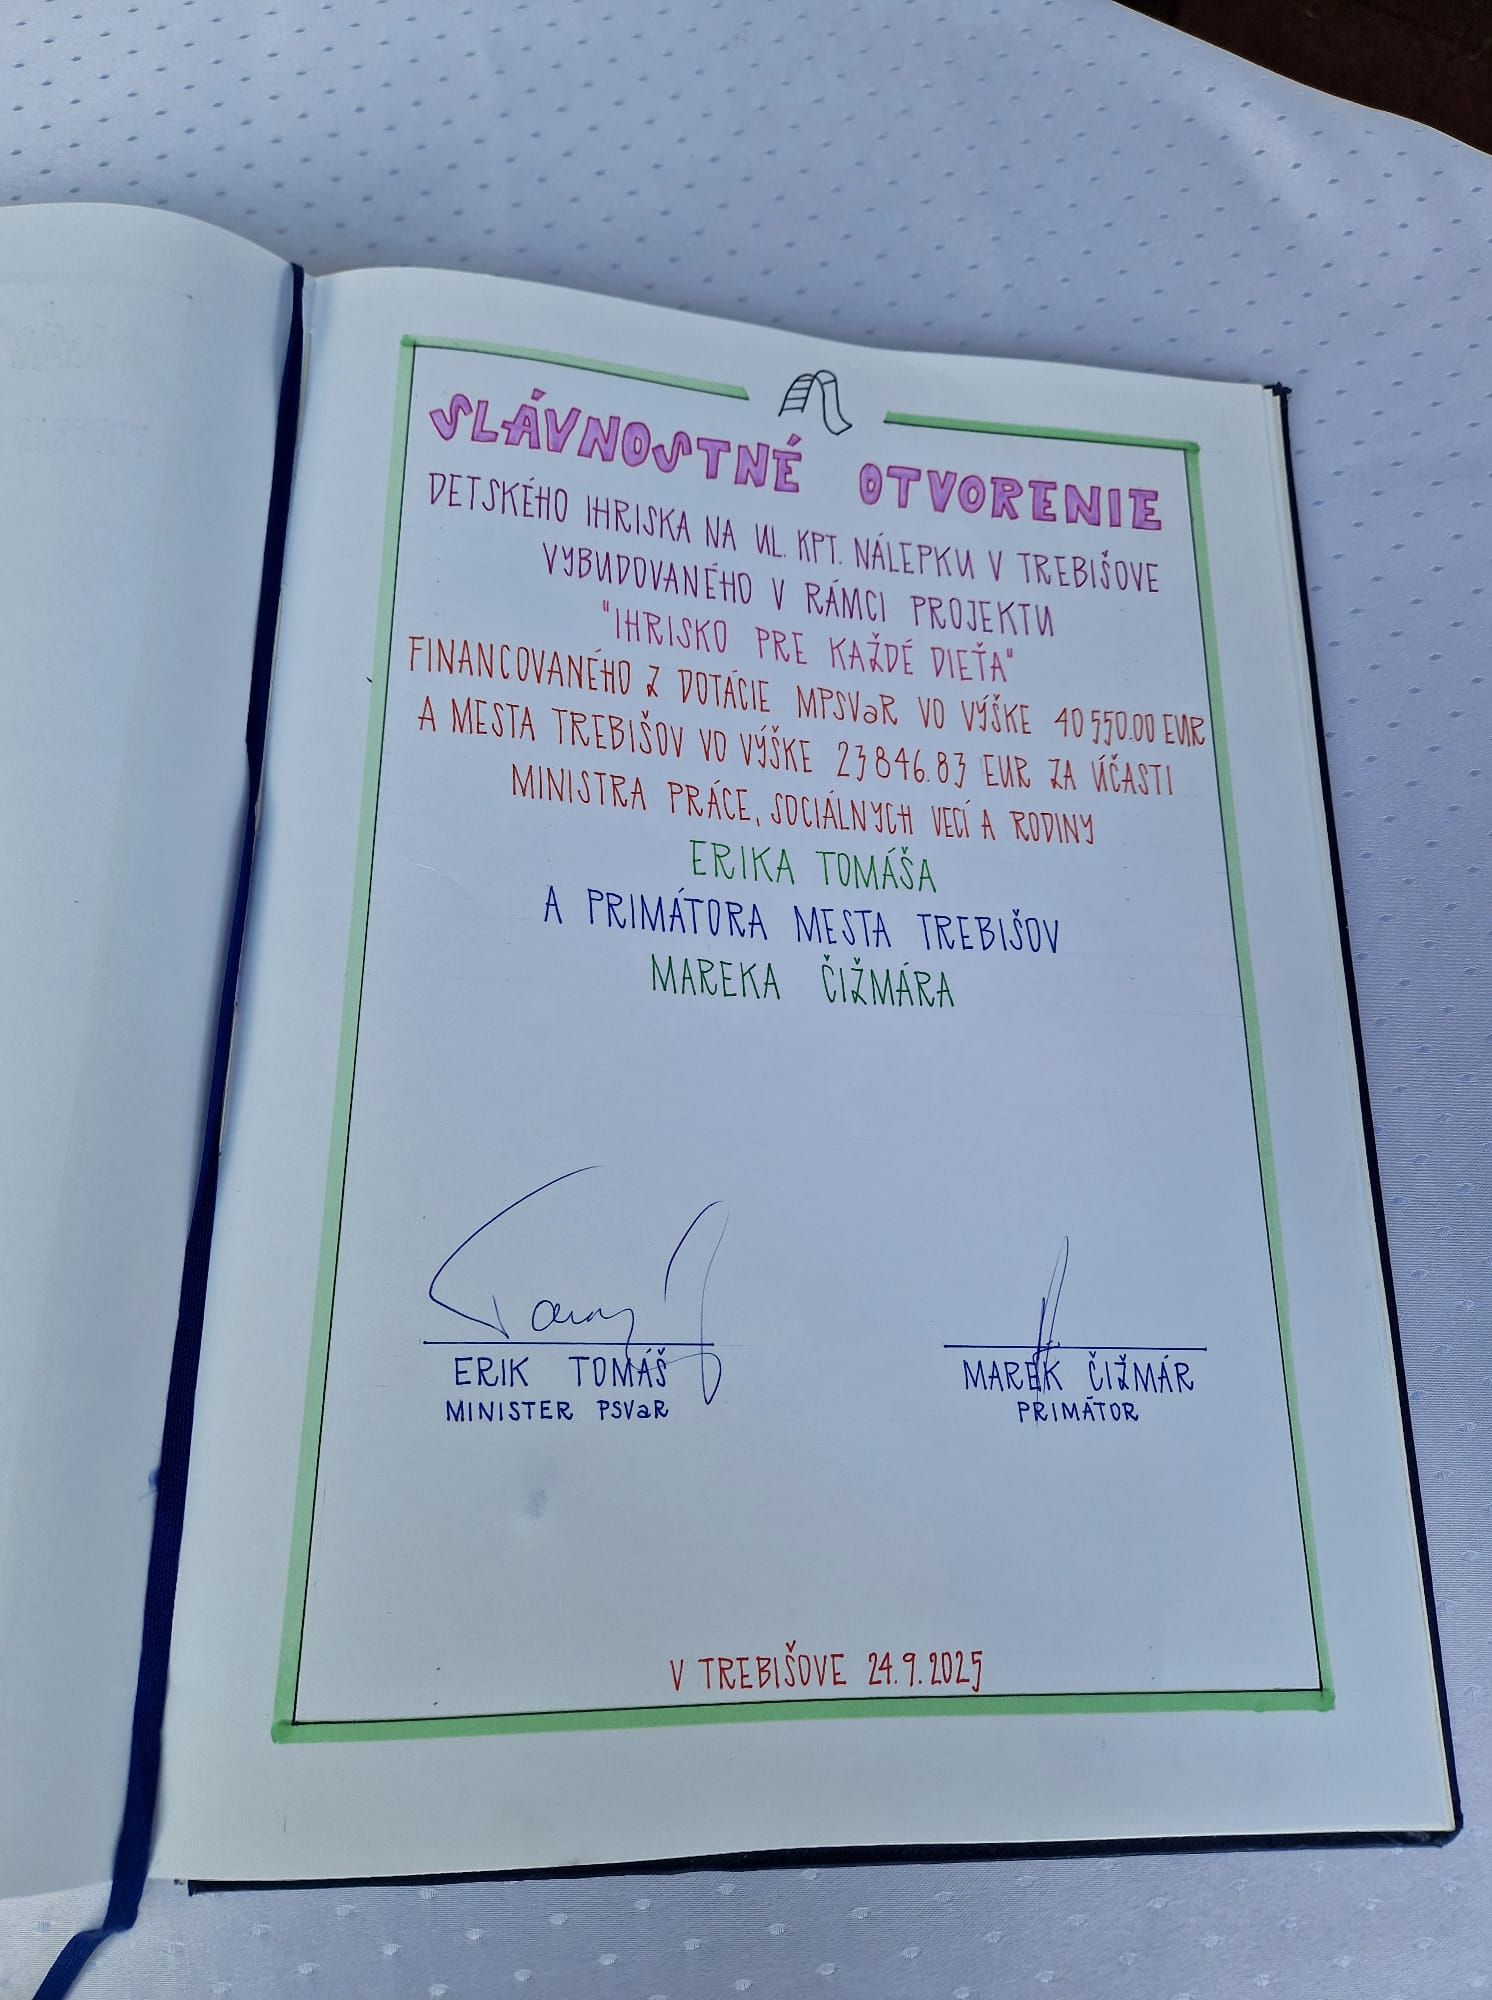 SLÁVNOSTNÉ OTVORENIE
DETSKÉHO IHRISKA NA UL. KPT. NÁLEPKU V TREBIŠOVE
VYBUDOVANÉHO V RÁMCI PROJEKTU
"IHRISKO PRE KAŽDÉ DIEŤA"
FINANCOVANÉHO Z DOTÁCIE MPSVaR VO VÝŠKE 40 550.00 EUR
A MESTA TREBIŠOV VO VÝŠKE 23 846.83 EUR ZA ÚČASTI
MINISTRA PRÁCE, SOCIÁLNYCH VECÍ A RODINY
ERIKA TOMÁŠA
A PRIMÁTORA MESTA TREBIŠOV
MAREKA ČIŽMÁRA
ERIK TOMÁŠ
MINISTER PSVaR
MAREK ČIŽMÁR
PRIMÁTOR
V TREBIŠOVE 24.9.2025